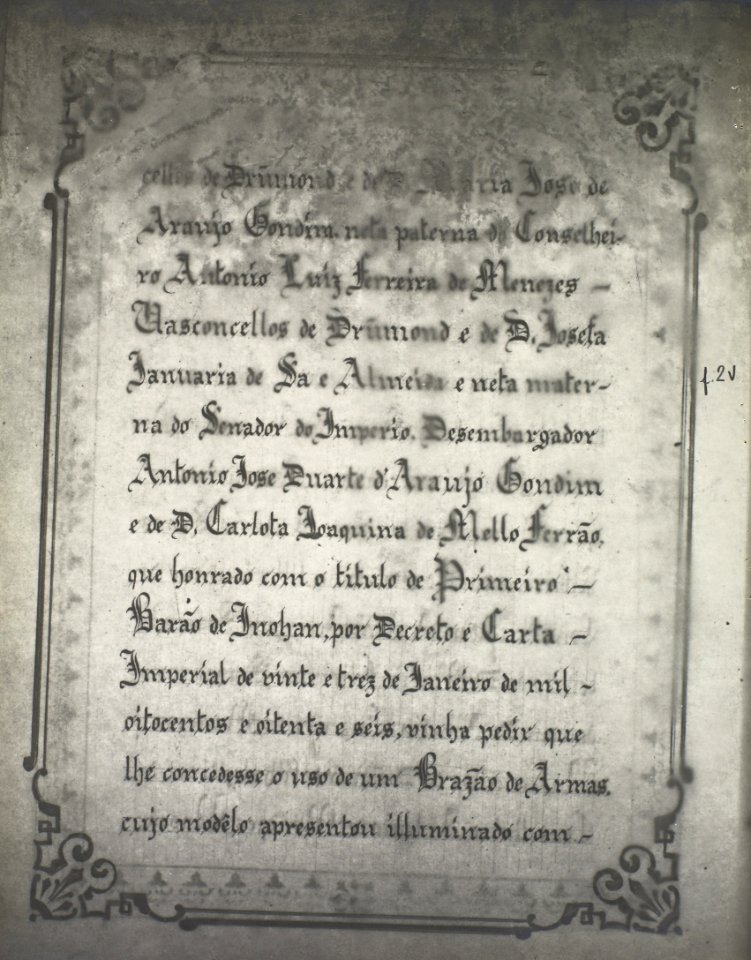 cellos de Drũmond e de D. Maria Jose de
Araujo Gondim. neta paterna do Conselhei-
ro Antonio Luiz Ferreira de Menezes —
Vasconcellos de Drũmond e de D. Josefa
Januaria de Sa e Almeida e neta mater-
na do Senador do Imperio. Desembargador
Antonio Jose Duarte d'Araujo Gondim
e de D. Carlota Joaquina de Mello Ferrão,
que honrado com o titulo de Primeiro —
Barão de Inohan, por Decreto e Carta —
Imperial de vinte e trez de Janeiro de mil -
oitocentos e oitenta e seis, vinha pedir que
lhe concedesse o uso de um Brazão de Armas,
cujo modêlo apresentou illuminado com -
f. 2v